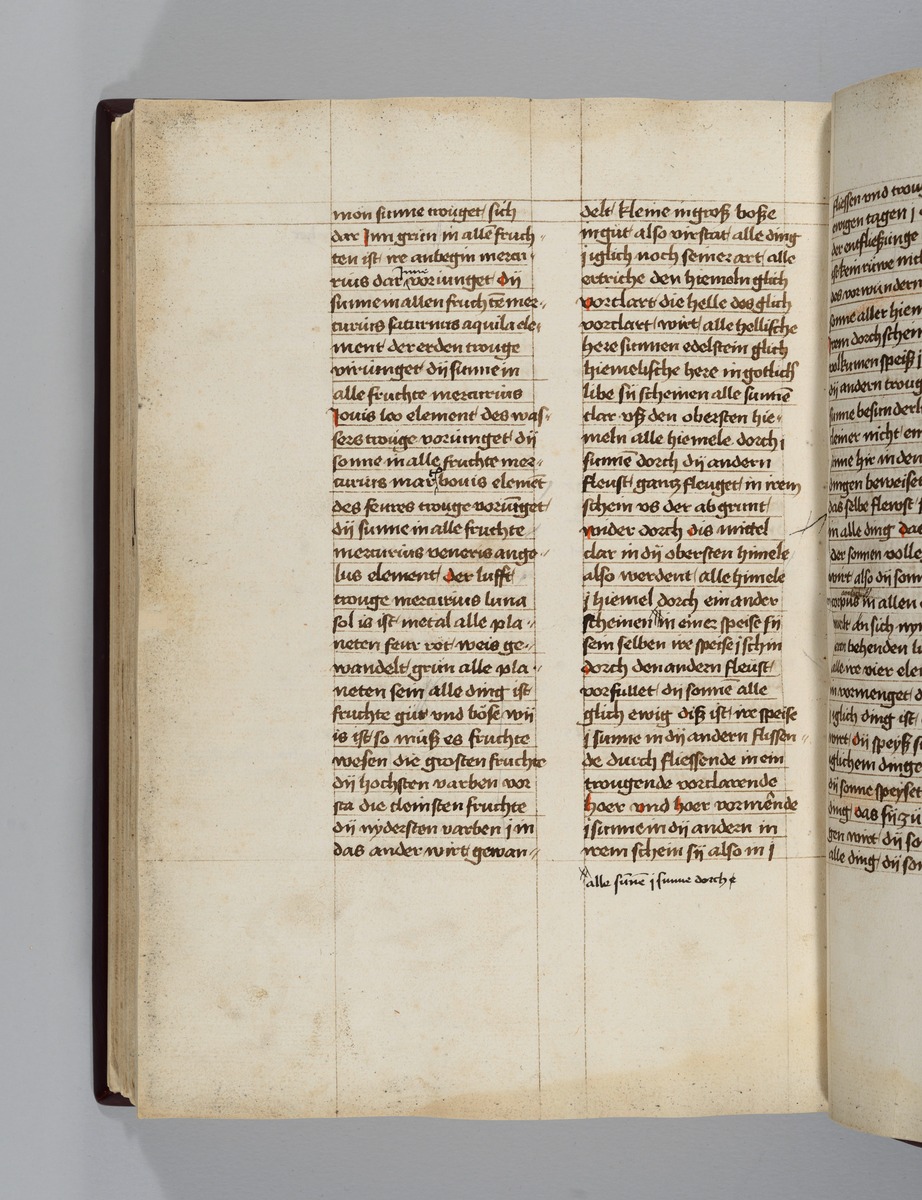 mon sunne trouget sich
dar Inn grun in alle fruch-
ten ist ire anbegin mercu-
rius dar Inne voriunget Dij
sunne in allen fruchtē mer-
curius saturnus aquila ele-
ment der erden trouge
virünget dij sunne in
alle fruchte mercurius
Jouis leo element des was-
sers trouge vorünget dij
sonne in alle fruchte mer-
curius mars bouis elemēt
des feures trouge vorünget
dij sunne in alle fruchte
mercurius veneris ange-
lus element der lufft
trouge mercurius luna
sol is ist metal alle pla-
neten feur rot weis ge-
wandelt grün alle pla-
neten sein alle ding ist
fruchte güt vnd böse wij
is ist so müß es fruchte
wesen die grosten fruchte
dij hochsten varben vor
sta die kleinsten fruchte
dij nydersten varben j in
das ander wirt gewan-
delt kleine in groß boße
in gut also virstat alle ding
j iglich noch seiner art alle
ertriche den hiemeln glich
vorclart die helle des glich
vorclart wirt alle hellische
here sunnen edelstein glich
hiemelische here in gotlich
libe sij scheinen alle sunnē
clar vß den obersten hie-
meln alle hiemele dorch j
sunnē dorch dij andern
fleust gantz fleuget in irem
schein vs der abgrunt
vnder dorch dis mittel
clar in dij obersten himele
also werdent alle himele
j hiemel dorch ein ander
scheinen in einer speise sij
sein selben ire speise j schin
dorch den andern fleust
vorfullet dij sonnē alle
glich ewig diß ist ire speise
j sunne in dij andern flissen-
de durch fliessende in ein
trougende vorclarende
hoer vnd hoer vormēnde
j sunne in dij andern in
irem schein sij also in j
alle sūnē j sunne dorch
fliessen vnd
ewigen tagen j
der entfließunge
des vorwundern
sonne aller hiem
rem dorch schein
volkumen speiß j
dij andern troug
sunne besunderli
kleiner nicht
sunne hir in den
dingen beweiset
das selbe fleust
in alle ding das
der sonnen volle
wirt also dij son
corpus in allen
welt an sich
behenden
alle ire vier ele
vormenget
iglich ding ist
wirt dij speyß
iglichem dinge
dij sonne speyset
ding das sij zu
gen wirt dij so
alle ding dij so